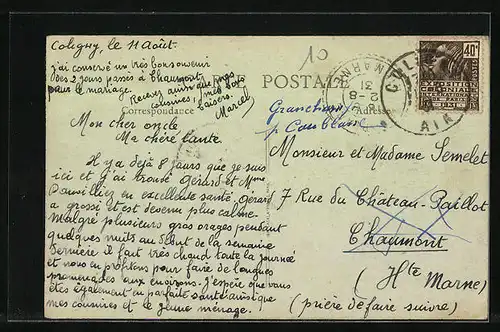 Coligny, le 11 Août.
j'ai conservé un très bon souvenir
des 2 jours passés à Chaumont
pour le mariage.
Recevez ainsi que mes
cousines, mes bons
baisers.
Marcel
10
POSTALE
Correspondance
Adresse
40c
EXPOSITION
COLONIALE
INTERNATIONALE
PARIS
AIN
MARNE
Mon cher oncle
Ma chère tante.
Il y a déjà 8 jours que je suis
ici et j'ai trouvé Gérard et Mme
en excellente santé, Gérard
a grossi et est devenu plus calme.
Malgré plusieurs gros orages pendant
quelques nuits au début de la semaine
dernière il fait très chaud toute la journée
et nous en profitons pour faire de longues
promenades aux environs. J'espère que vous
êtes également en parfaite santé ainsi que
mes cousines et le jeune ménage.
Monsieur et Madame Semelet
7 Rue du Château-Paillot
Chaumont
(Hte Marne)
(prière de faire suivre)